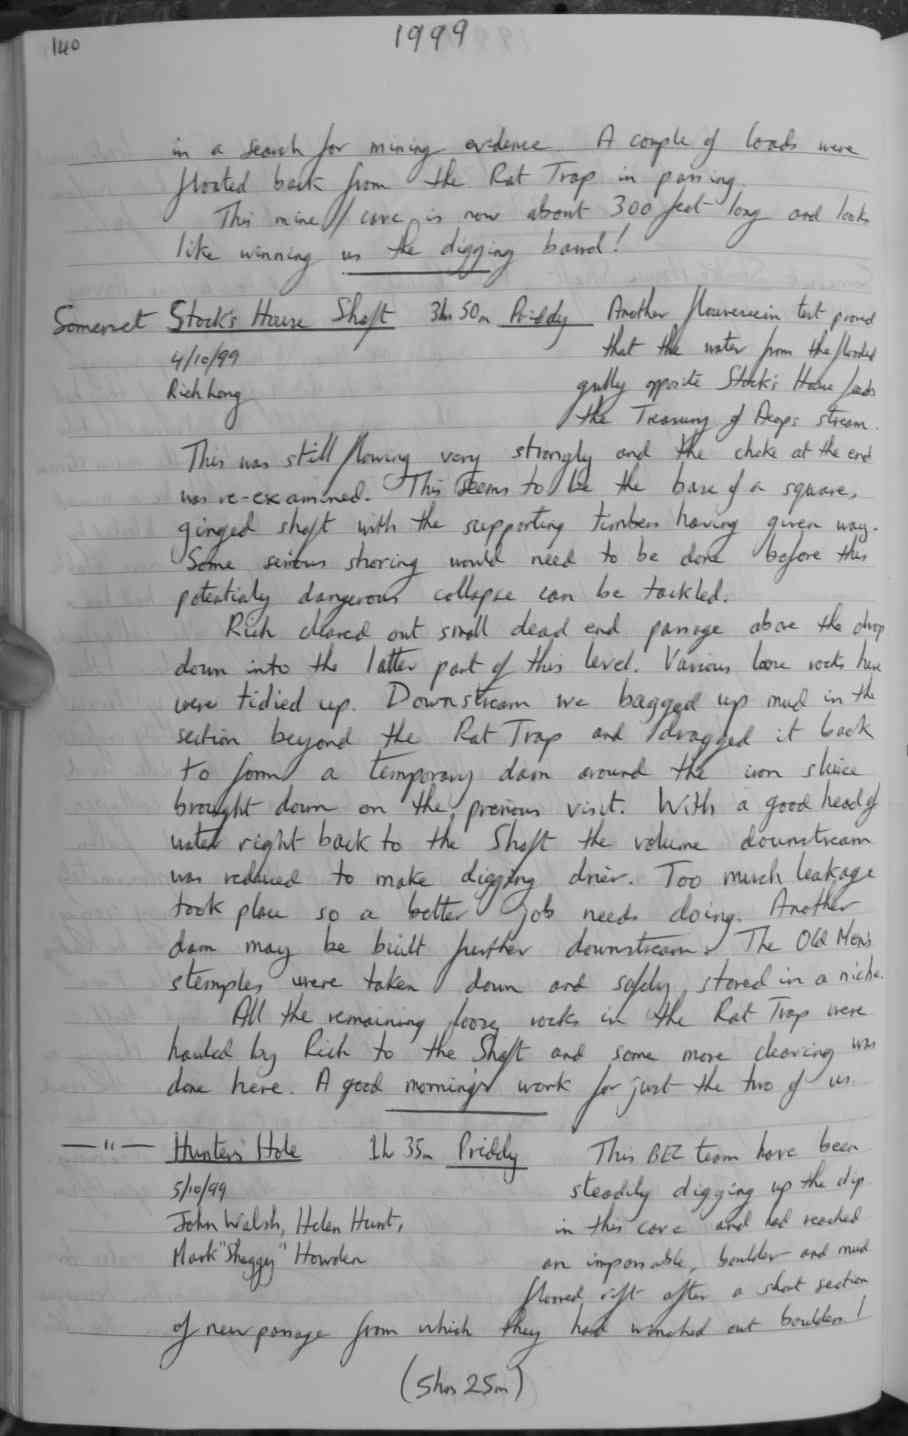 140
1999
in a search for mining evidence. A couple of loads were
floated back from the Rat Trap in passing.
This mine/cave is now about 300 feet long and looks
like winning us the digging barrel!
Somerset Stock's House Shaft 3h 50m Priddy Another flourescein test proved
4/10/99 that the water from the flooded
Rich Long gully opposite Stock's House feeds
the Treasury of Aeops stream.
This was still flowing very strongly and the choke at the end
was re-examined. This seems to be the base of a square,
ginged shaft with the supporting timbers having given way.
Some serious shoring would need to be done before this
potentialy dangerous collapse can be tackled.
Rich cleared out small dead end passage above the drop
down into the latter part of this level. Various loose rocks here
were tidied up. Downstream we bagged up mud in the
section beyond the Rat Trap and dragged it back
to form a temporary dam around the iron sluice
brought down on the previous visit. With a good head of
water right back to the Shaft the volume downstream
was reduced to make digging drier. Too much leakage
took place so a better job needs doing. Another
dam may be built further downstream. The Old Men's
stemples were taken down and safely stored in a niche.
All the remaining loose rocks in the Rat Trap were
hauled by Rich to the Shaft and some more clearing was
done here. A good morning's work for just the two of us.
—"— Hunters' Hole 1h 35m Priddy This BEC team have been
5/10/99 steadily digging up the dip
John Walsh, Helen Hunt, in this cave and had reached
Mark "Shaggy" Howden an impassable, boulder and mud
floored rift after a short section
of new passage from which they had winched out boulders!
(5hrs 25m)